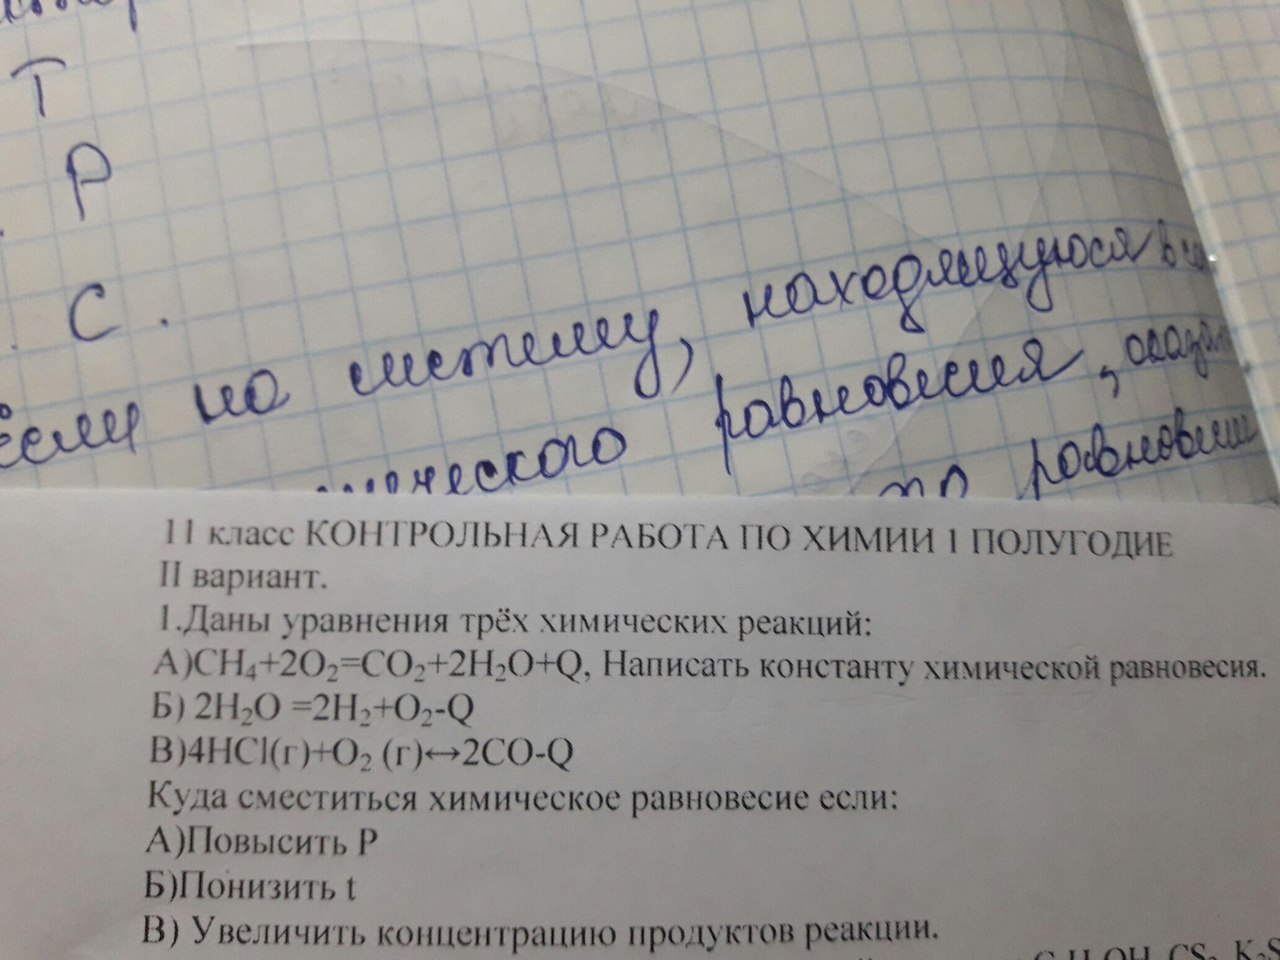 Т
Р
С.
Если на систему, находящуюся в
равновесия, оказа
равновеси
11 класс КОНТРОЛЬНАЯ РАБОТА ПО ХИМИИ 1 ПОЛУГОДИЕ
II вариант.
1.Даны уравнения трёх химических реакций:
А)CH₄+2O₂=CO₂+2H₂O+Q, Написать константу химической равновесия.
Б) 2H₂O =2H₂+O₂-Q
В)4HCl(г)+O₂ (г)↔2CO-Q
Куда сместиться химическое равновесие если:
А)Повысить Р
Б)Понизить t
В) Увеличить концентрацию продуктов реакции.
CS₂, K₂S